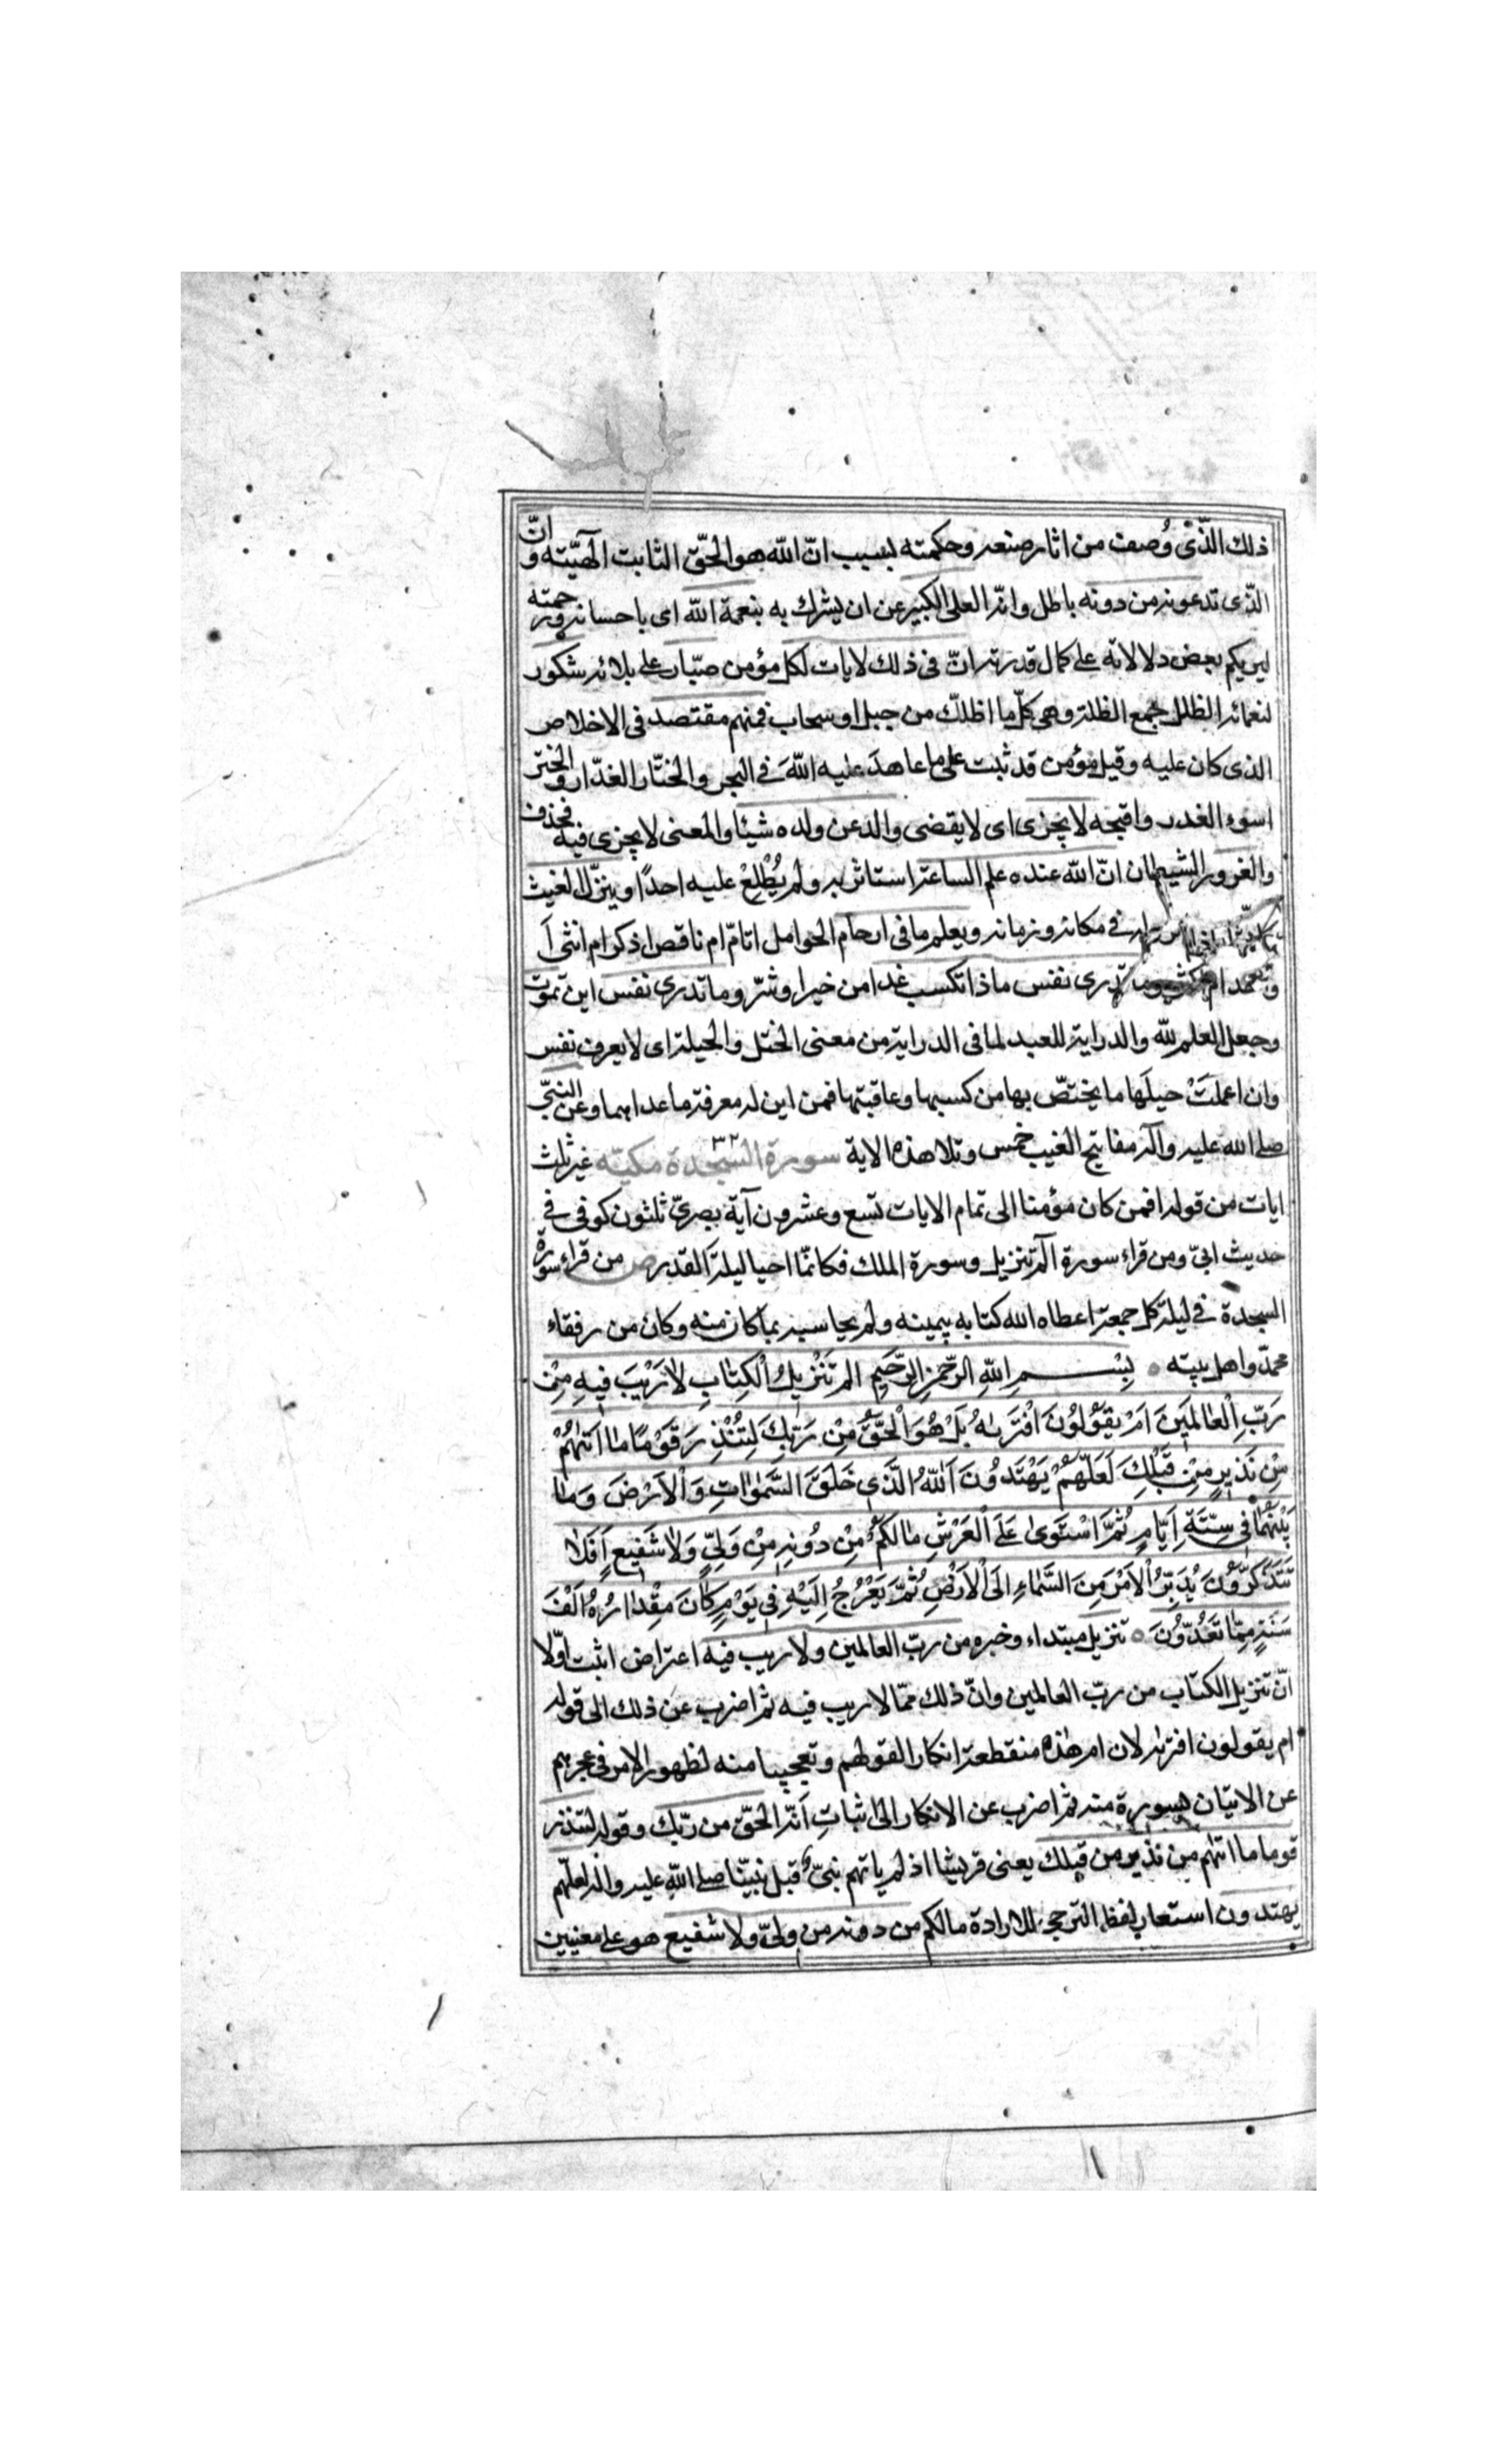 ذلك الّذى وُصف من اثار صنعه وحكمته بسبب انّ الله هو الحقّ الثابت الٓهيّته و انّ
الّذى تدعونه من دونه باطل وانّه العلى الكبير عن ان يشرك به بنعمة الله اى باحسانه ورحمته
ليريكم بعض دلالاته على كمال قدرته انّ فى ذلك لايات لكل مؤمن صبّار على بلائه شكور
لنعمائه الظلل جمع الظلة وهى كلّ ما اظلّك من جبل او سحاب فمنهم مقتصد فى الاخلاص
الذى كان عليه وقيل مؤمن قد ثبت على ما عاهدَ عليه اللّهَ فى البحر والختّار الغدّار والختر
اسوء الغدر واقبحه لا يجزى اى لا يقضى والد عن ولده شيئا والمعنى لا يجزى فيه فحذف
والغرور الشيطان انّ الله عنده علم الساعة استاثر به ولم يُطْلِعْ عليه احدًا وينزّل الغيث
فى مكانه وزمانه ويعلم ما فى ارحام الحوامل اتامّ ام ناقص اذكر ام انثى أ
تدرى نفس ماذا تكسب غدا من خير او شرّ وما تدرى نفس اين تموت
وجعل العلم للّه والدراية للعبد لما فى الدراية من معنى الختل والحيلة اى لا يعرف نفس
وان اعملَتْ حيلَها ما يختصّ بها من كسبها وعاقبتها فمن اين له معرفة ما عداهما وعن النبىّ
صلى الله عليه وآله مفاتيح الغيب خمس وتلا هذه الاية سورة السجدة ٣٢ مكيّه غير ثلث
ايات من قوله افمن كان مؤمنا الى تمام الايات تسع وعشرون آية بصرىّ ثلثون كوفى فى
حديث ابىّ ومن قراء سورة آلم تنزيل وسورة الملك فكانمّا احيا ليلة القدر ص من قراء سورة
السجدة فى ليلة كل جمعة اعطاه الله كتابه بيمينه ولم يحاسبه بما كان منه وكان من رفقاء
محمدّ واهل بيته ٥ بِسْمِ اللّهِ الرَّحْمٰنِ الرَّحِيمِ الم تَنْزِيلُ الْكِتٰابِ لاٰ رَيْبَ فِيهِ مِنْ
رَبِّ الْعٰالَمِينَ اَمْ يَقُولُونَ افْتَرَيٰهُ بَلْ هُوَ الْحَقُّ مِنْ رَبِّكَ لِتُنْذِرَ قَوْمًا مٰا اَتٰيهُمْ
مِنْ نَذِيرٍ مِنْ قَبْلِكَ لَعَلَّهُمْ يَهْتَدُونَ اَللّهُ الَّذِى خَلَقَ السَّمٰوٰاتِ وَالْاَرْضَ وَمٰا
بَيْنَهُمٰا فِى سِتَّةِ اَيّٰامٍ ثُمَّ اسْتَوىٰ عَلَى الْعَرْشِ مٰا لَكُمْ مِنْ دُونِهِ مِنْ وَلِىٍّ وَلاٰ شَفِيعٍ اَفَلاٰ
تَتَذَكَّرُونَ يُدَبِّرُ الْاَمْرَ مِنَ السَّمٰاءِ اِلَى الْاَرْضِ ثُمَّ يَعْرُجُ اِلَيْهِ فِى يَوْمٍ كٰانَ مِقْدٰارُهُ اَلْفَ
سَنَةٍ مِمّٰا تَعُدُّونَ ٥ تنزيل مبتداء وخبره من ربّ العالمين ولا ريب فيه اعتراض اثبت اوّلا
انّ تنزيل الكتاب من ربّ العالمين وانّ ذلك ممّا لا ريب فيه ثم اضرب عن ذلك الى قوله
ام يقولون افتريٰه لان ام هذه منقطعة انكارا لقولهم وتعجيبا منه لظهور الامر فى عجزهم
عن الاتيان بسورة منه ثم اضرب عن الانكار الى اثباتِ اَنّه الحقّ من ربّك وقوله لتنذر
قوما ما اتيهم من نذير من قبلك يعنى قريشا اذ لم ياتهم نبىّ قبل نبيّنا صلى اللّه عليه واله لعلّهم
يهتدون استعار لفظ الترجى للارادة ما لكم من دونه من ولىّ ولا شفيع هو على معنيين